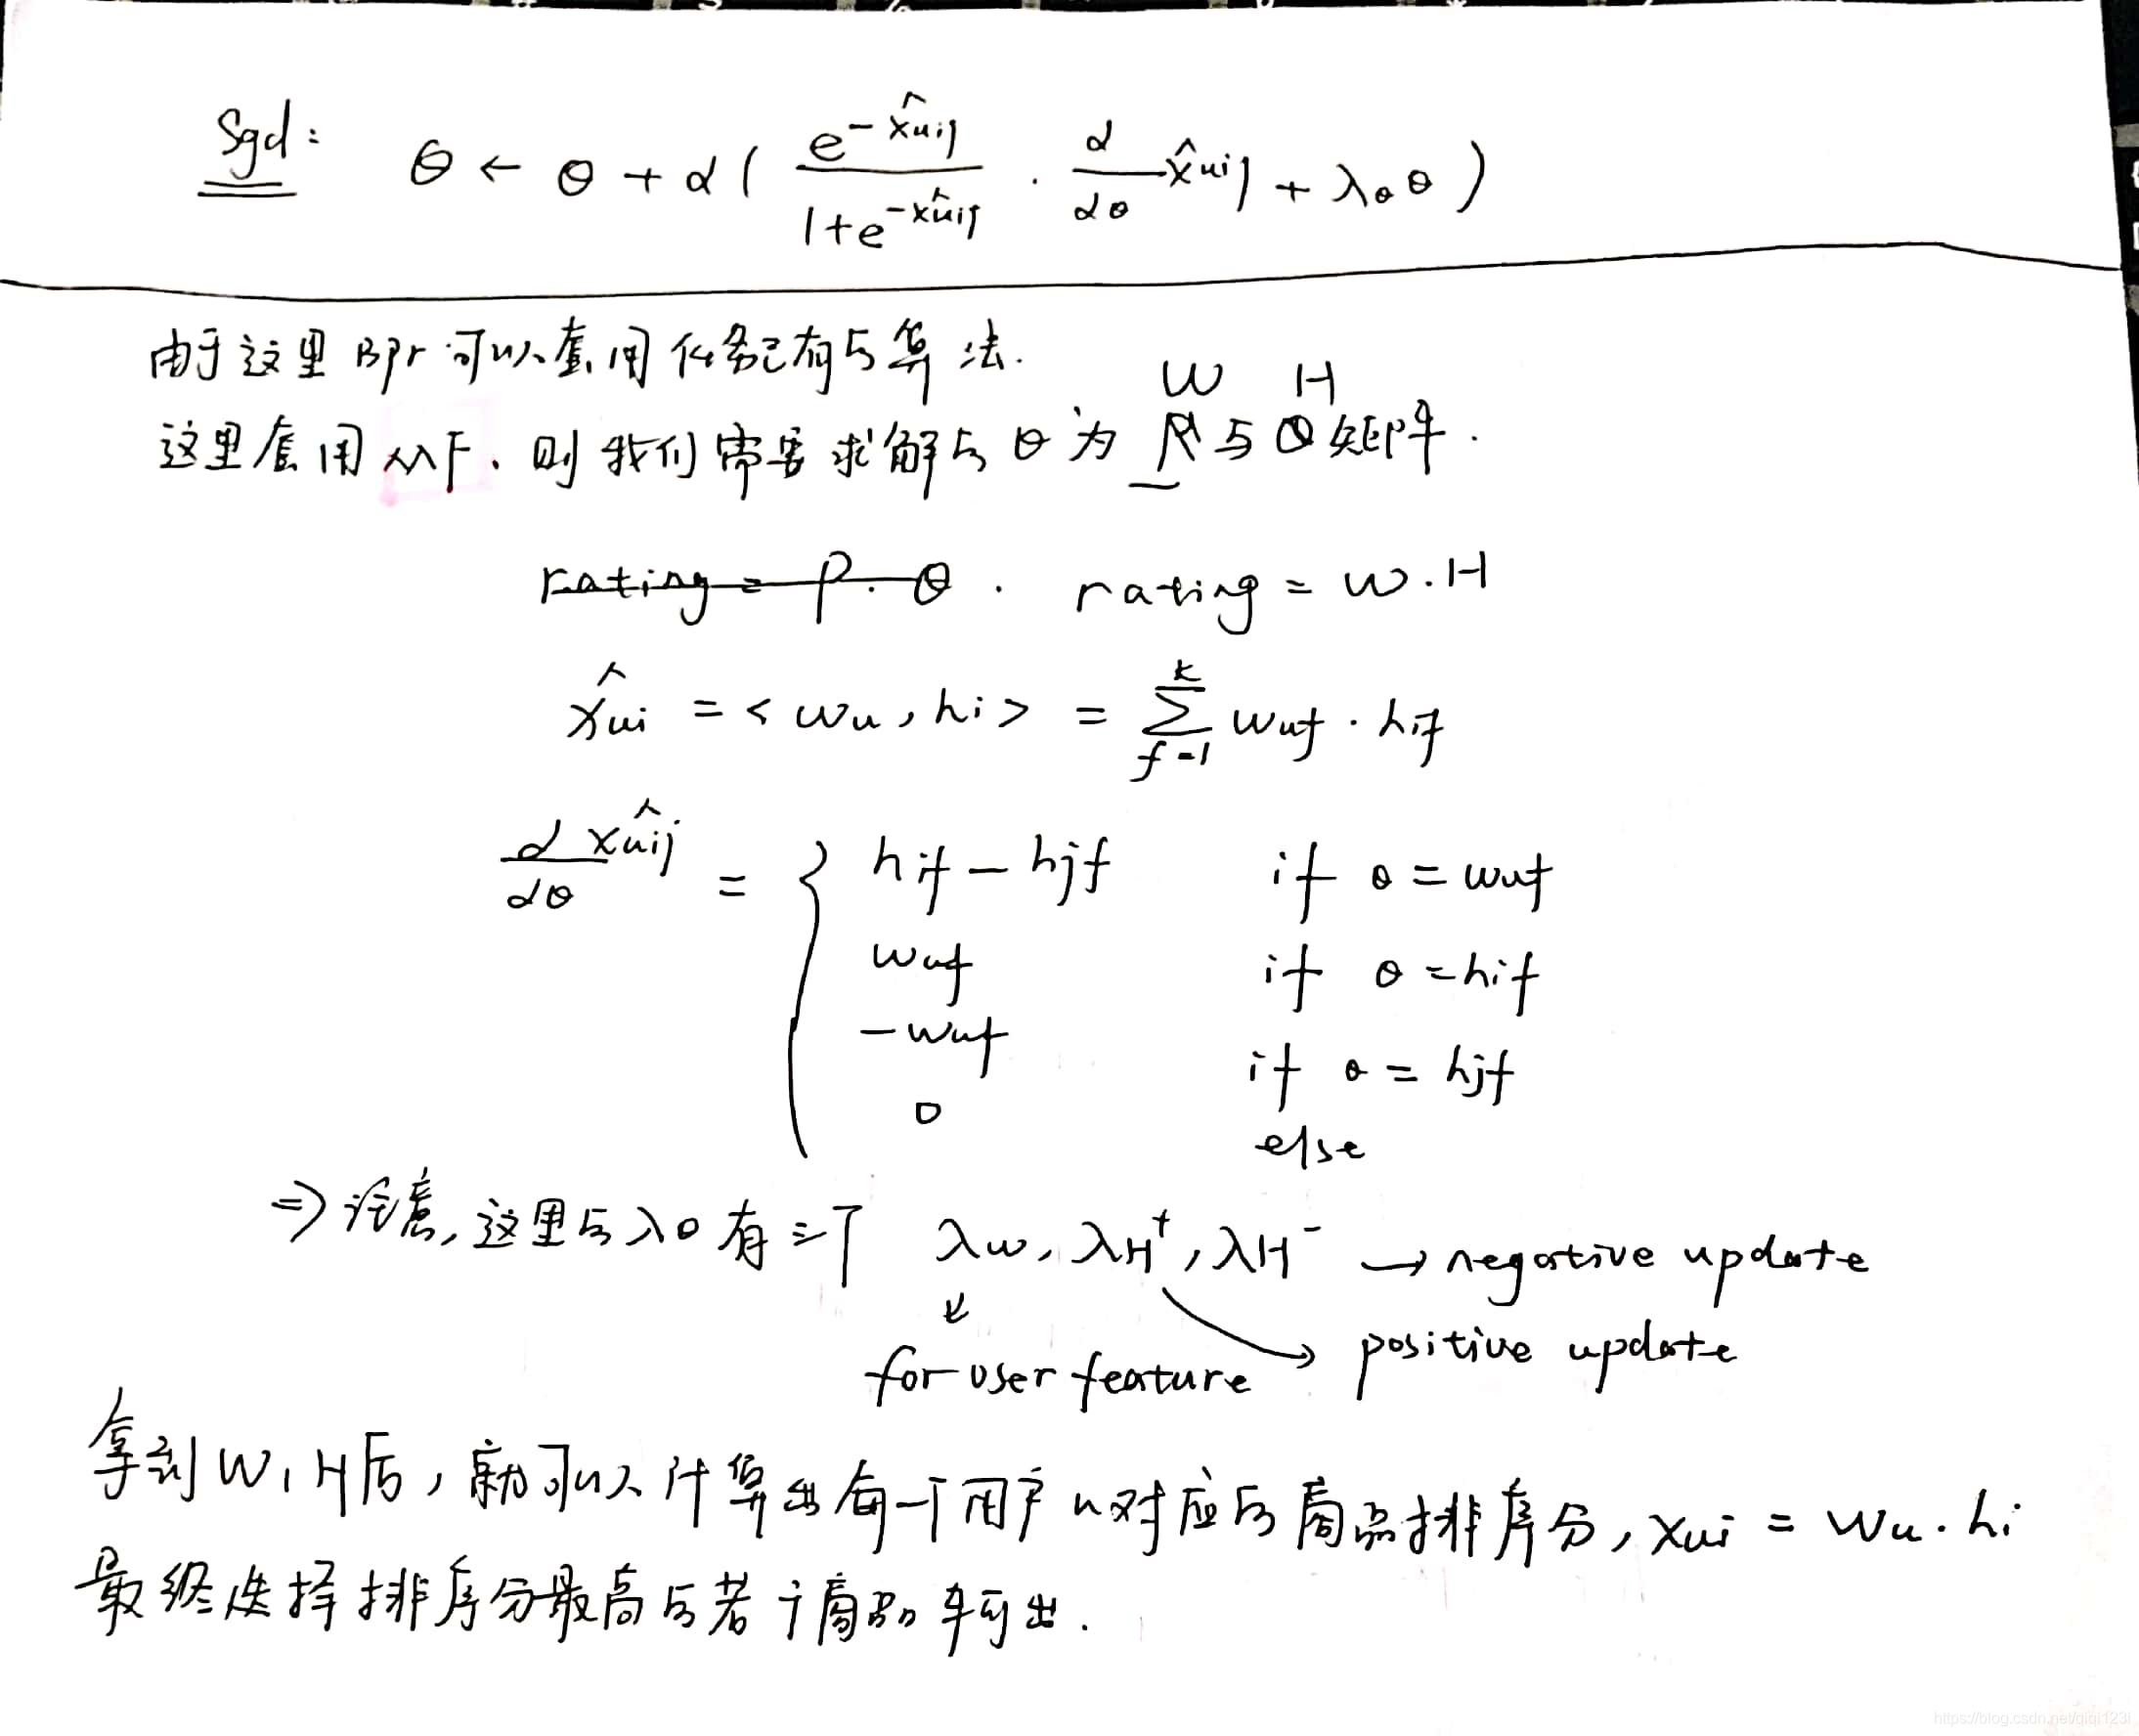 Sgd: θ ← θ + α ( e^{-x̂uij} / (1+e^{-x̂uij}) · d/dθ x̂uij + λθ θ )
由于这里 Bpr 可以套用任务已有的算法.
W H
这里套用 MF. 则我们需要求解的 θ 为 与 矩阵.
rating = P · Q . rating = W.H
x̂ui = <wu, hi> = Σ_{f=1}^{k} wuf · hif
d x̂uij / dθ = { hif - hjf if θ = wuf
wuf if θ = hif
-wuf if θ = hjf
0 else
⇒ 注意, 这里的 λθ 有三个 λw, λH⁺, λH⁻ → negative update
for user feature → positive update
拿到 W, H后, 就可以计算出每一个用户u对应的商品排序分, xui = wu. hi
最终选择排序分最高的若干商品输出.
https://blog.csdn.net/qiqi123i